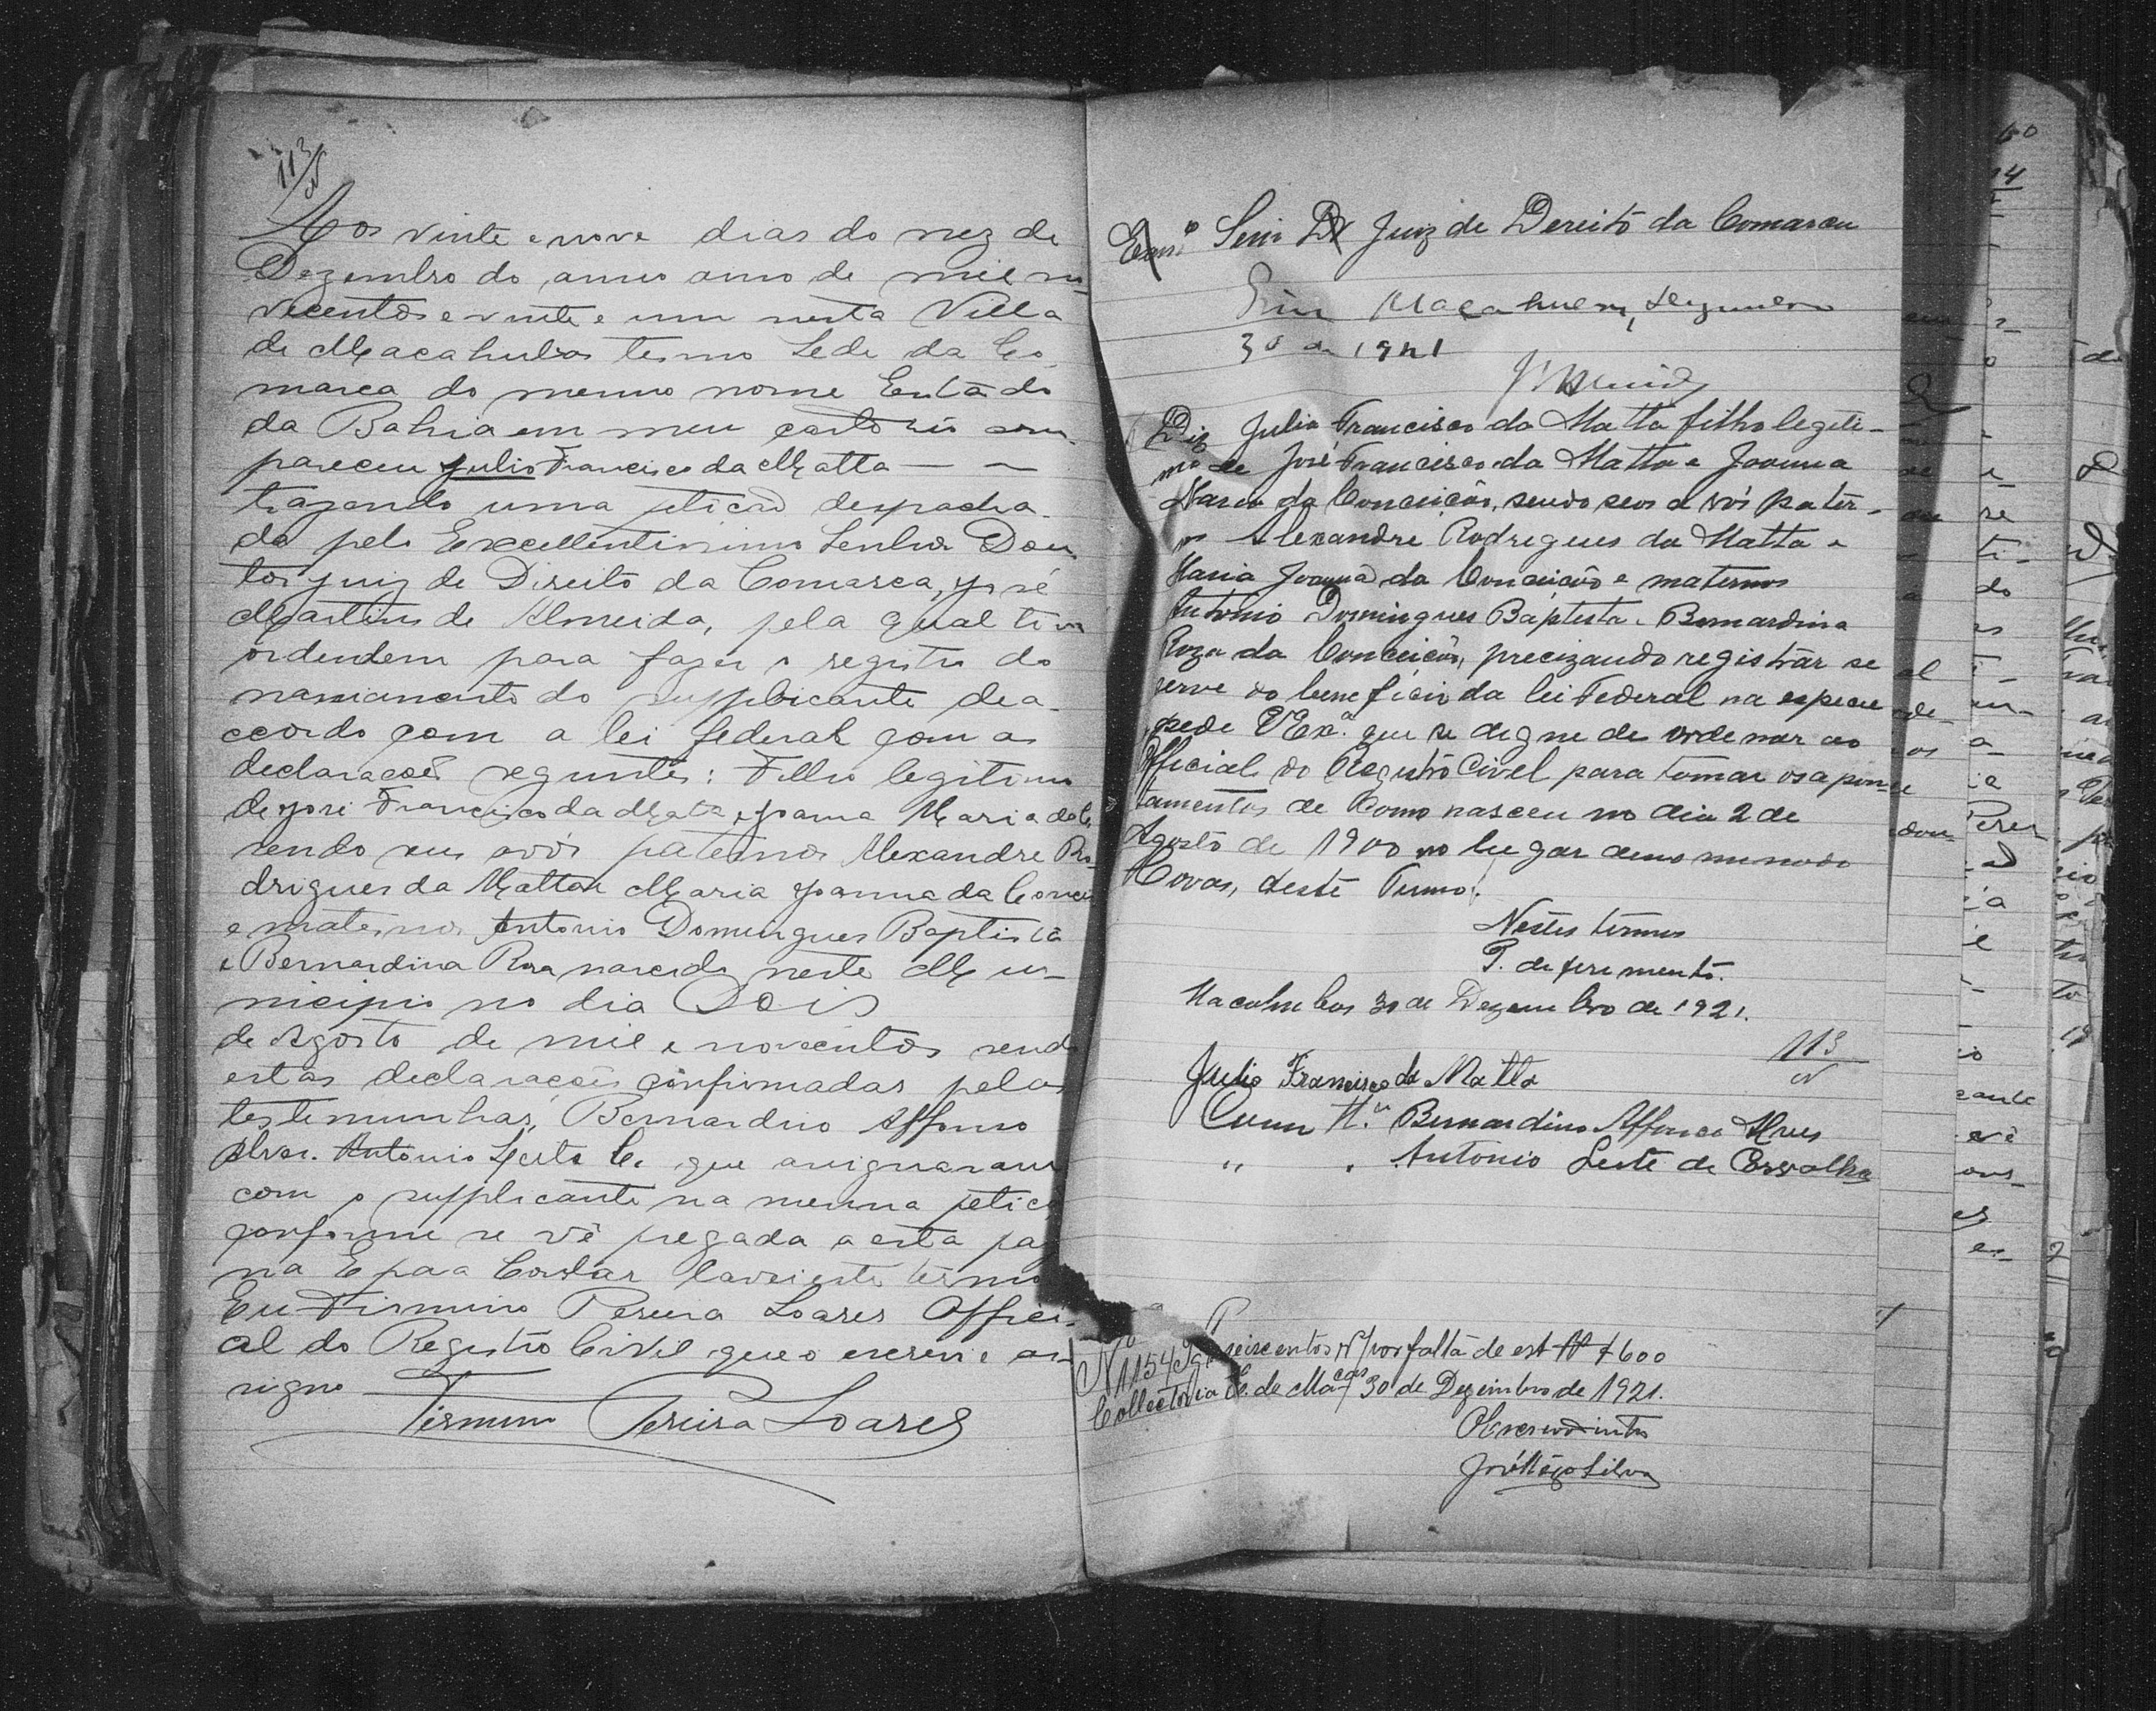 113
Aos vinte e nove dias do mez de
Dezembro do anno anno de mil no-
vecentos e vinte e um nesta Villa
de Macahubas termo Sede da Co
marca do mesmo nome Estado
da Bahia em meu cartorio com-
pareceu Julio Francisco da Matta
trazendo uma petição despacha-
da pelo Excellentissimo Senhor Dou
tor juiz de Direito da Comarca, José
Martins de Almeida, pela qual tive
ordendem para fazer o registro do
nascimento do supplicante de a-
ccordo com a lei federal com as
declarações seguntes: Filho legitimo
de José Francisco da Matta e Joana Maria da C.
sendo seus avós paternos Alexandre Ro-
drigues da Matta e Maria Joanna da Concei
e maternos Antonio Domingues Baptista
e Bernardina Rosa nascido neste Mu-
nicipio no dia Dois
de Agosto de mil e novecentos sendo
estas declarações confirmadas pelas
testemunhas, Bernardino Affonso
Alves. Antonio Leste C. que assignaram
com o supplicante na mesma petiçã
conforme se vê pregada a esta pa
na E paa Constar lavrei este termo
Eu Firmino Pereira Soares Offici-
al do Registro Civil que o escrevi e as-
signo
Firmino Pereira Soares
Exmº Senr Dr Juiz de Dereito da Comarca
Sim Macahubas, Dezembro
30 de 1921
Diz Julio Francisco da Matta filho legiti-
mo de José Francisco da Matta e Joanna
Maria da Conceição, sendo seos avós pater-
nos Alexandre Rodregues da Matta e
Maria Joanna da Conceição e maternos
Antonio Domingues Baptesta e Bernardina
Roza da Conceição, precizando registrar se
serve do beneficio da lei Federal na especie
pede VExª. que se digne de ordenar ao
Official do Registro Civel para tomar os apon-
tamentos de Como nasceu no dia 2 de
Agosto de 1900 no lugar denominado
Covas, deste Termo.
Nestes termos
P. deferimento.
Macahubas 30 de Dezembro de 1921.
113
Julio Francisco da Matta
Comm Tª. Bernardino Affonso Alves
" " Antonio Leste de Carvalho
Nº 1154 Pg. seiscentos rs/ por falta de est. Rs $600
Collectoria E. de Macas/ 30 de Dezembro de 1921.
José Silva